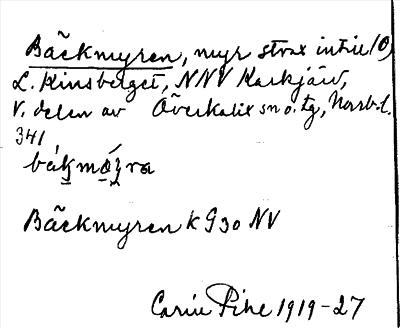 Bäckmyren, myr strax intill (O)
L. Kinsberget, NNV Karkjärv,
V. delen av Överkalix sn o. tg, Norrb. l.
341
Bäckmyren k G30 NV
Carin Pihl 1919–27